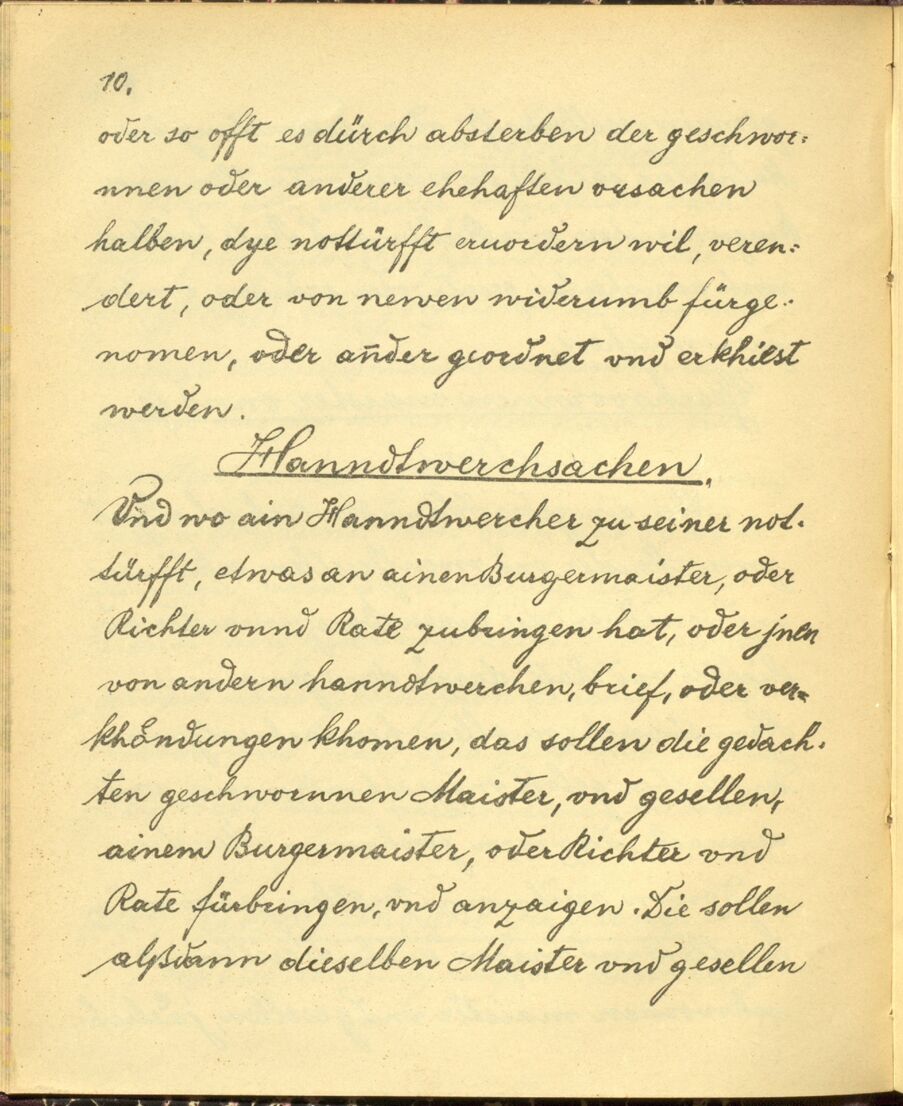 10.
oder so offt es dürch absterben der geschwor:
nnen oder anderer ehehaften vrsachen
halben, dye nottürfft eruordern wil, veren:
dert, oder von newen widerumb fürge:
nomen, oder an̄der geordnet vnd erkhiest
werden.
Hanndtwerchsachen.
Vnd wo ain Hanndtwercher zu seiner not:
türfft, etwas an ainen Burgermaister, oder
Richter vnnd Rate zubringen hat, oder jnen
von andern hanndtwerchen, brief, oder ver=
khöndungen khomen, das sollen die gedach:
ten geschwornnen Maister, vnd gesellen,
ainem Burgermaister, oder Richter vnd
Rate fürbringen, vnd anzaigen. Die sollen
alßdann dieselben Maister vnd gesellen